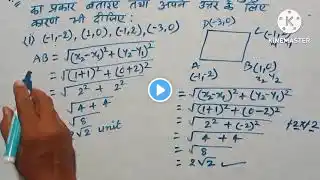 का प्रकार बताइए तथा अपने उत्तर के लिए
कारण भी दीजिए:
(i) (-1,-2), (1,0), (-1,2), (-3,0)
AB = √(x₂-x₁)²+(y₂-y₁)²
= √(1+1)²+(0+2)²
= √2²+2²
= √4+4
= √8
2√2 unit
D(-3,0)
C(-1,
A
(-1,-2)
B
(1,0)
x₂ y₂
= √(x₂-x₁)²+(y₂-y₁)²
= √(1+1)²+(0-2)²
= √2²+(-2)²
= √4+4
= √8
= 2√2
KINEMASTER